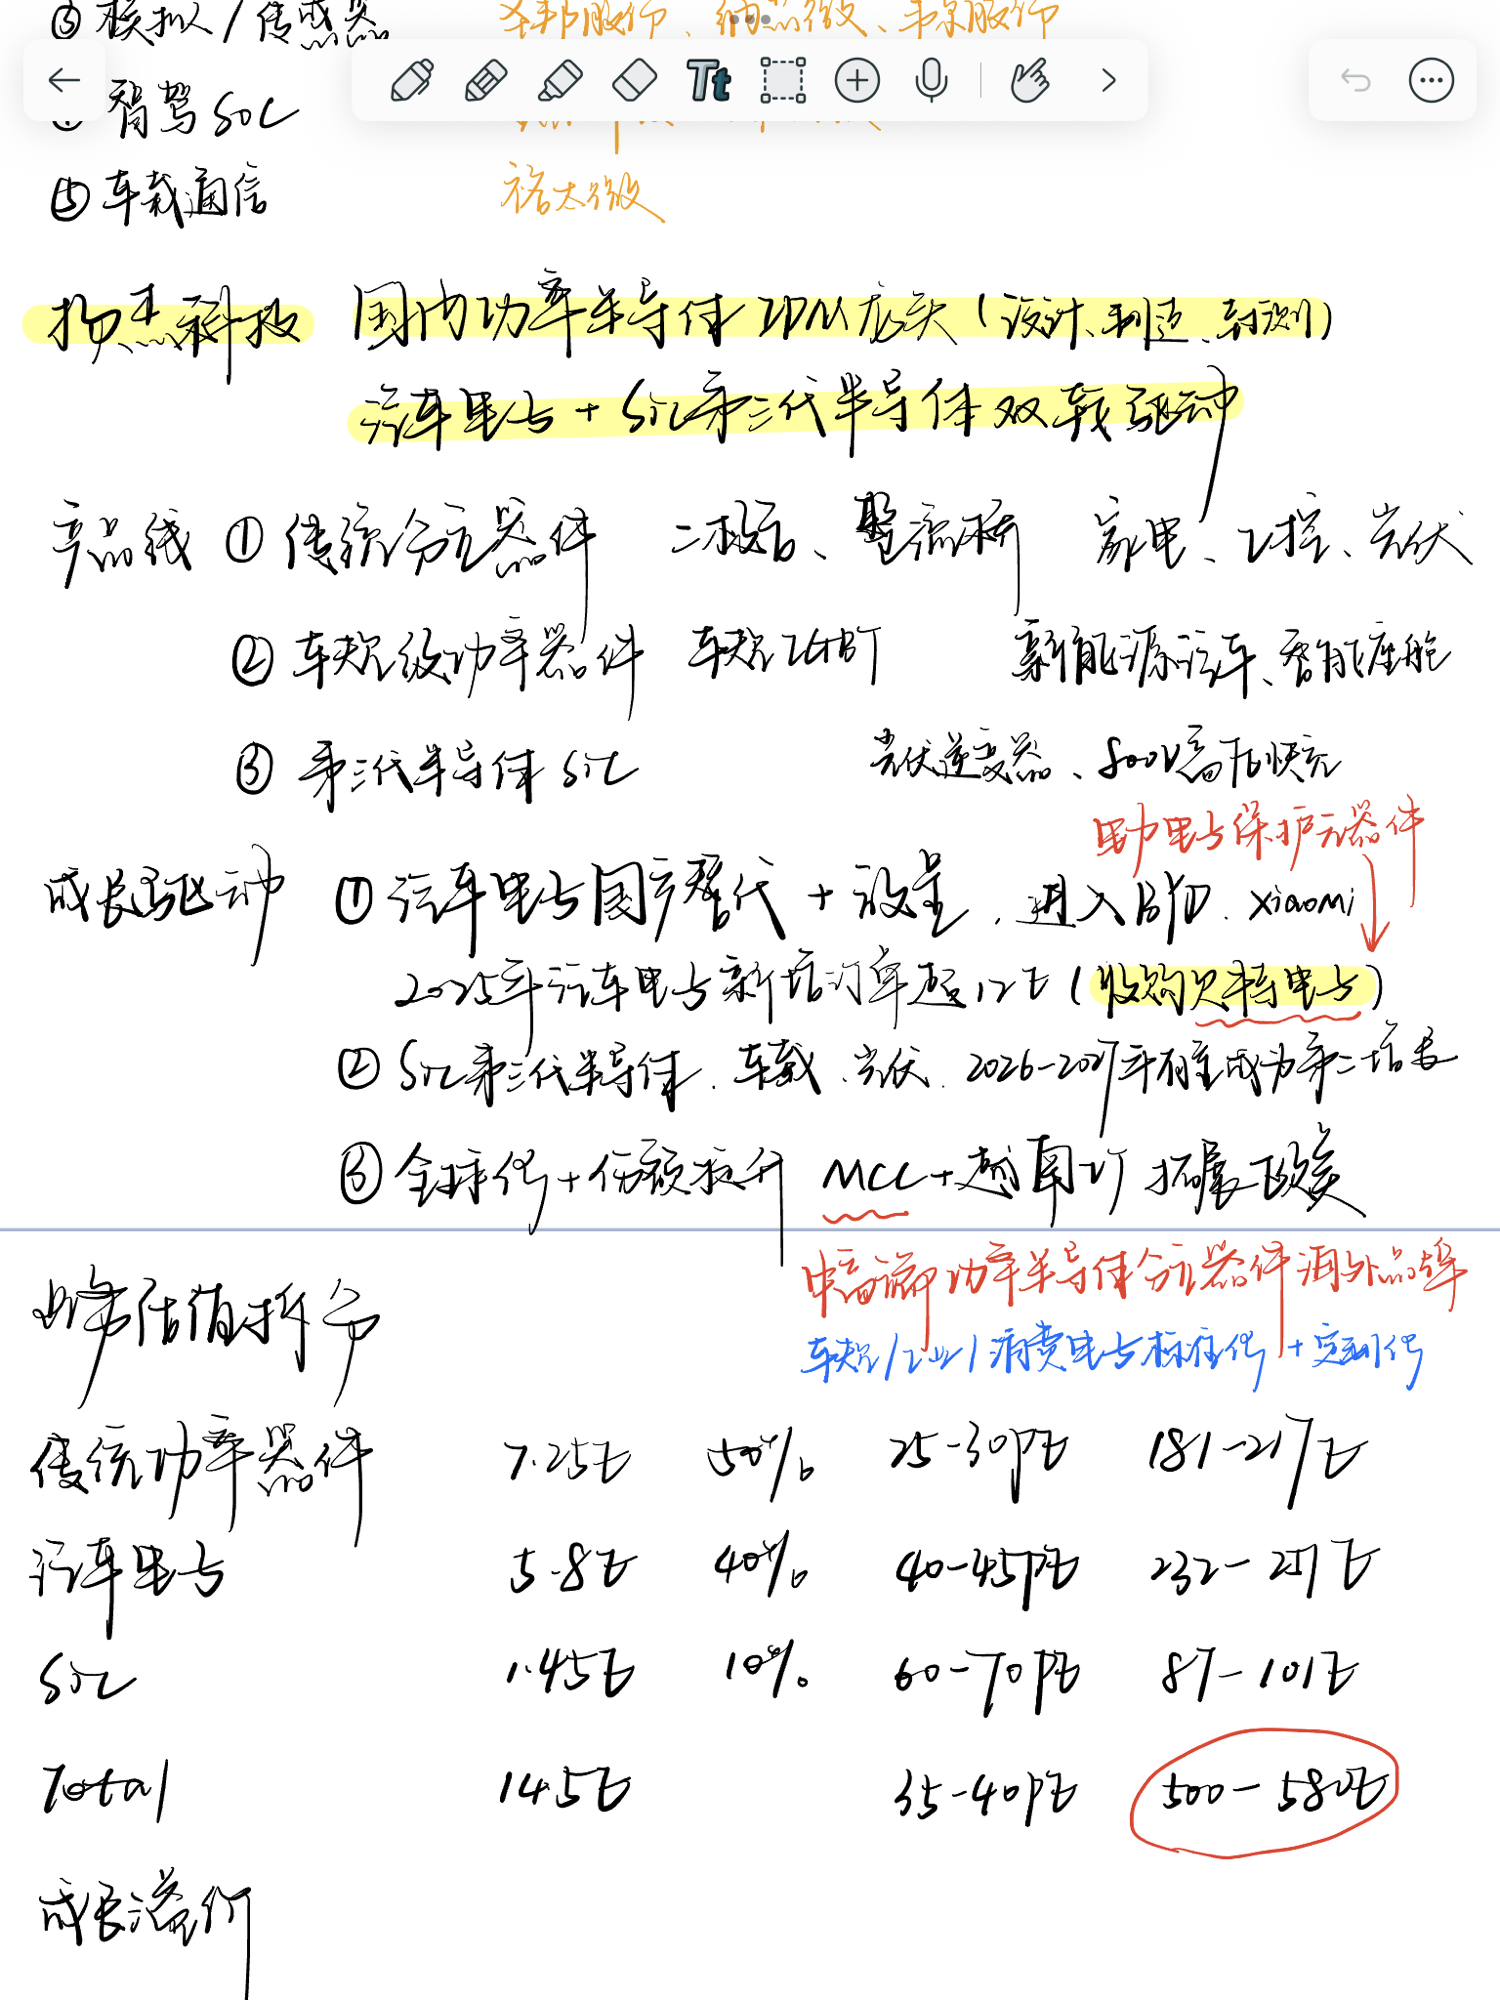 ③ 模拟/传感器 圣邦股份、纳芯微、韦尔股份
智驾SoC
⑤ 车载通信 裕太微
扬杰科技 国内功率半导体IDM龙头(设计、制造、封测)
汽车电子+SiC第三代半导体双轮驱动
产品线 ① 传统分立器件 二极管、整流桥 家电、工控、光伏
② 车规级功率器件 车规IGBT 新能源汽车、智能座舱
③ 第三代半导体SiC 光伏逆变器、800V高压快充
电力电子保护元器件
成长驱动 ① 汽车电子国产替代+放量,进入BYD、xiaomi
2025年汽车电子新增订单超12亿(收购贝特电子)
② SiC第三代半导体,车载、光伏,2026-2027年有望成为第二增长
③ 全球化+份额提升 MCC+越南工厂 拓展欧美
中高端功率半导体分立器件海外品牌
业务估值拆分
车规/工业/消费电子标准化+定制化
传统功率器件 7.25亿 50% 25-30PE 181-217亿
汽车电子 5.8亿 40% 40-45PE 232-251亿
SiC 1.45亿 10% 60-70PE 87-101亿
Total 14.5亿 35-40PE 500-580亿
成长溢价